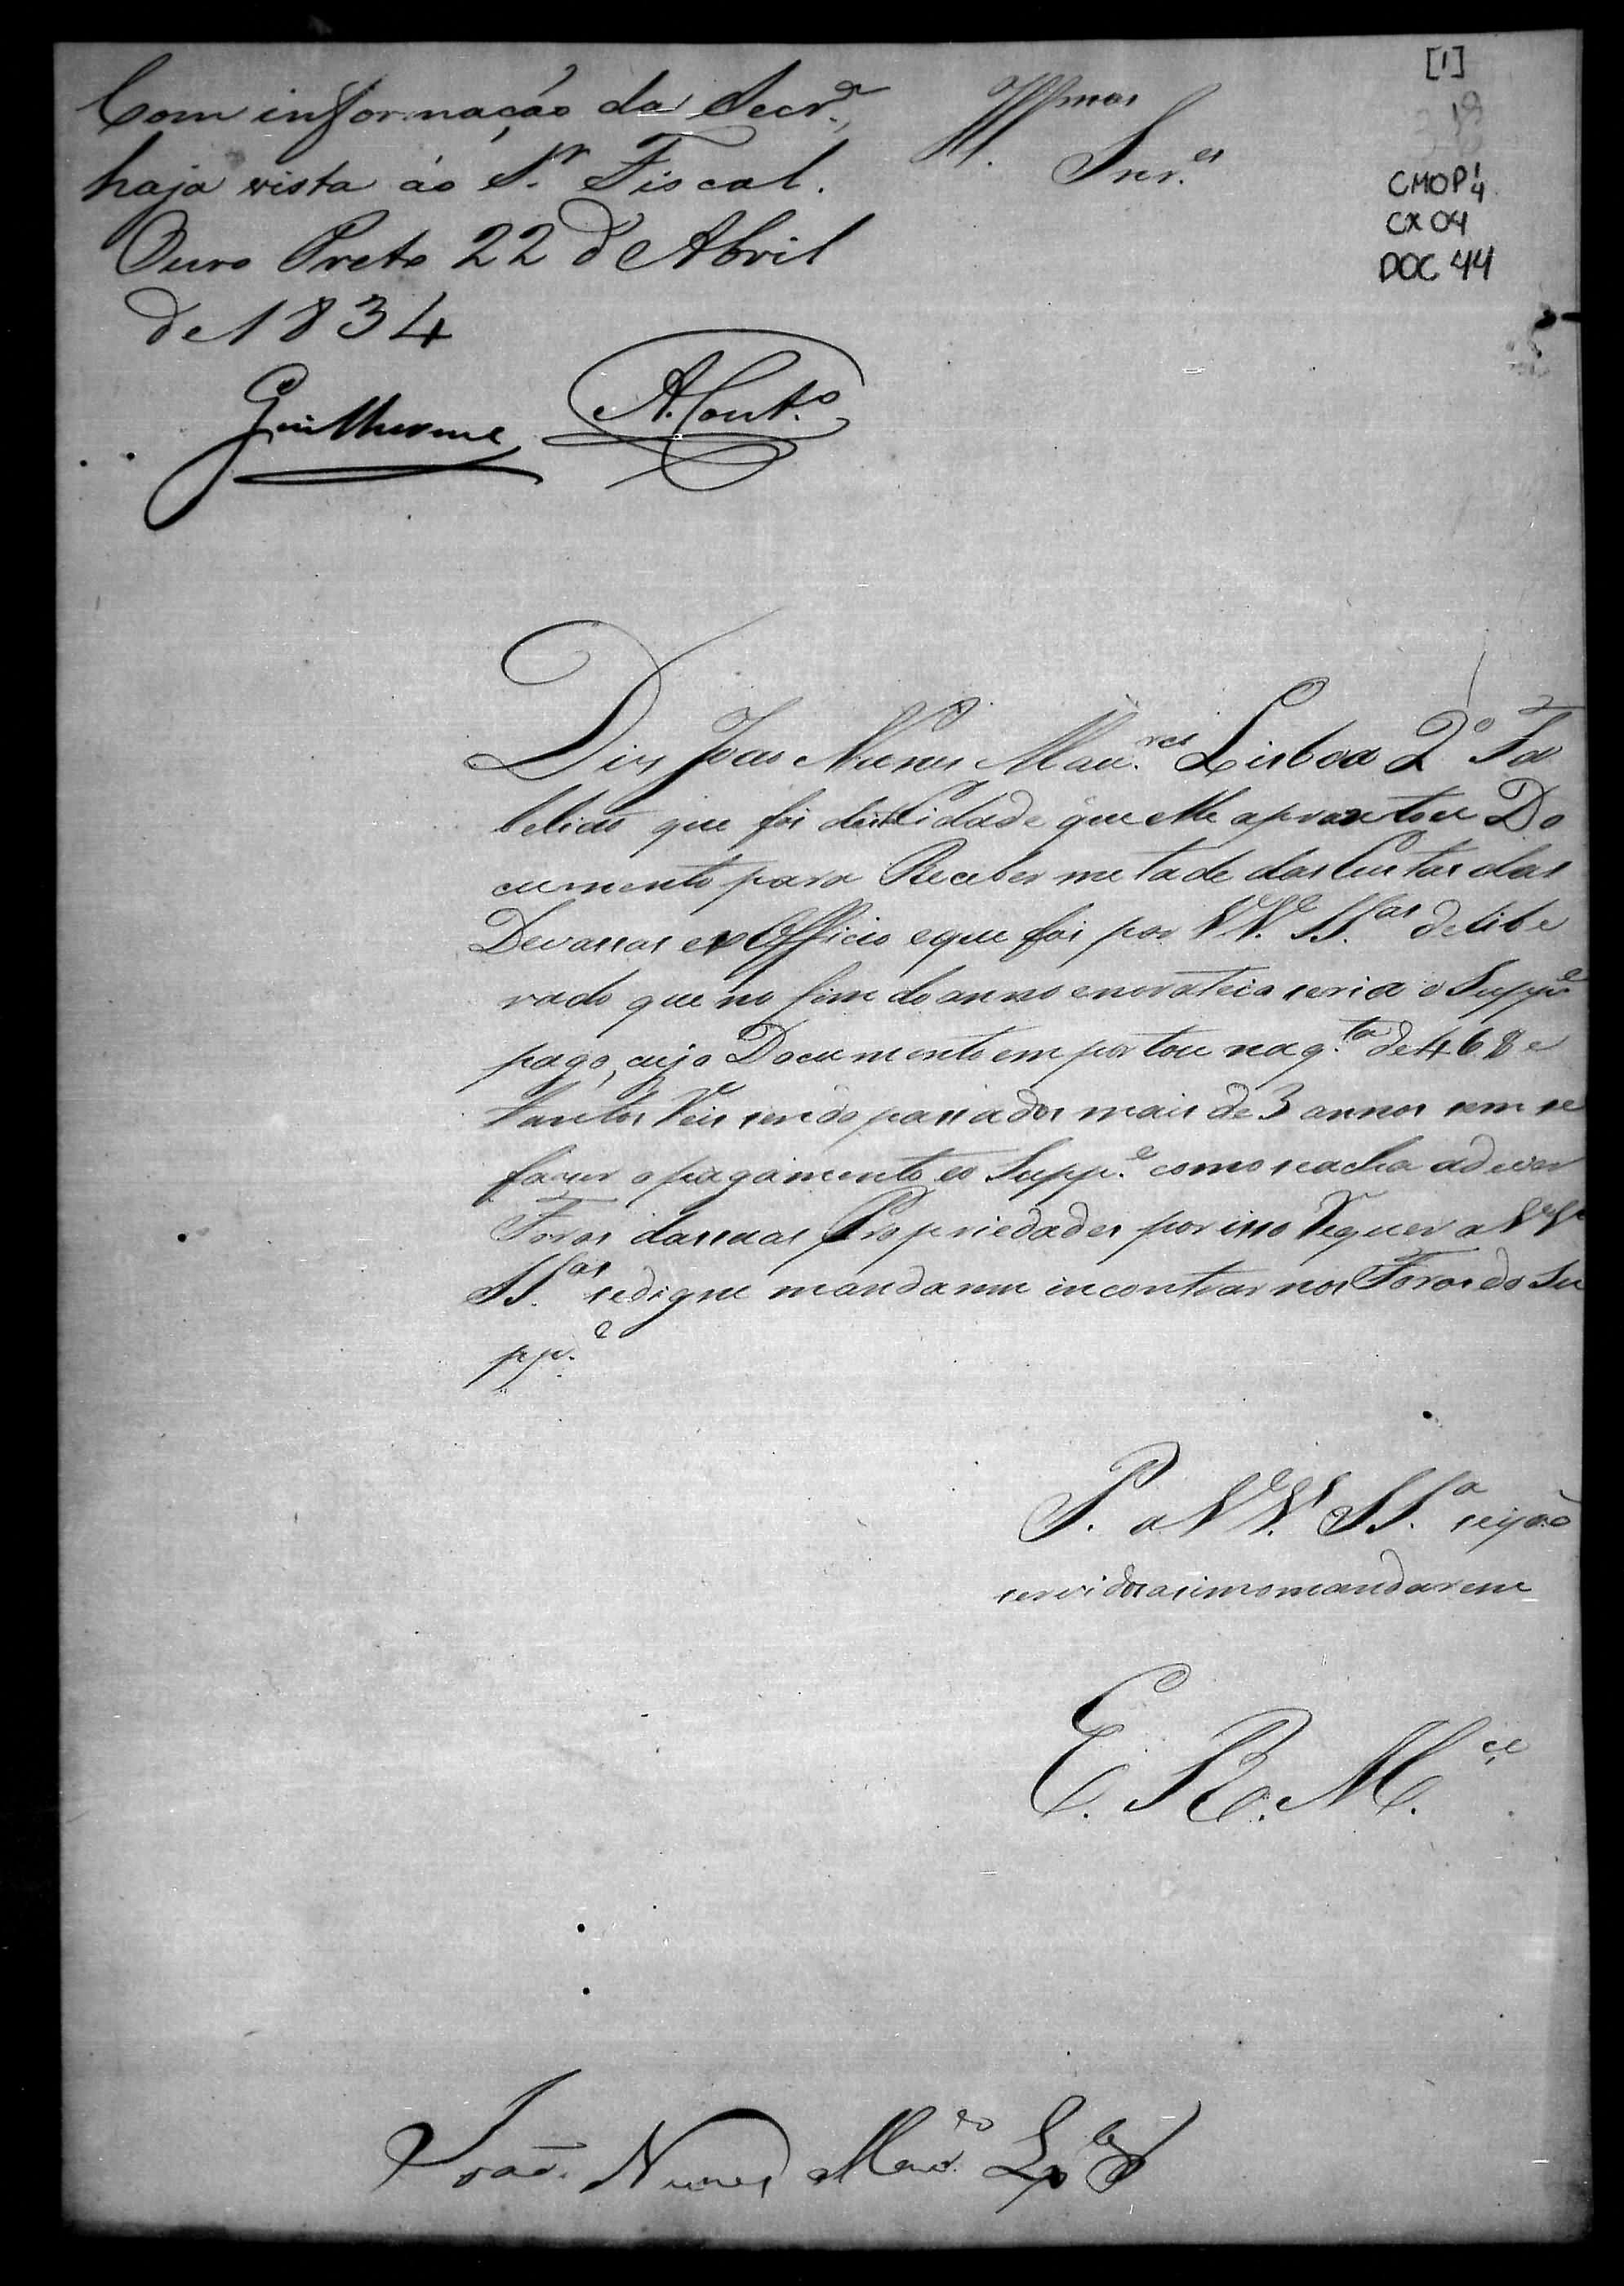 [1]
CMOP 1/4
CX 04
DOC 44
Com informação da Secr.ª,
haja vista áo S.r Fiscal.
Ouro Preto 22 de Abril
de 1834
Guilherme A. Cout.o
Ill.mos
Snr.es
Diz João Nunes Mau.res Lisboa 2º Ta
belião que foi desta Cidade que elle aprezentou Do
cumento para Receber metade das Custas das
Devassas ex Officio e que foi por VV. SS.as delibe
rado que no fim do anno enorateio seria o Supp.e
pago, cujo Documento emportou na q.ta de 468 e
tantos Reis sendo passados mais de 3 annos sem se
fazer o pagamento eo Supp.e como seacha adever
Foros dassuas Propriedades por isso Requer a VV
SS.as sedigne mandarem incontrar nos Foros do Su
pp.e
P. a VV. SS.a sejão
servidos assim o mandarem
E. R. M.ce
João Nunes